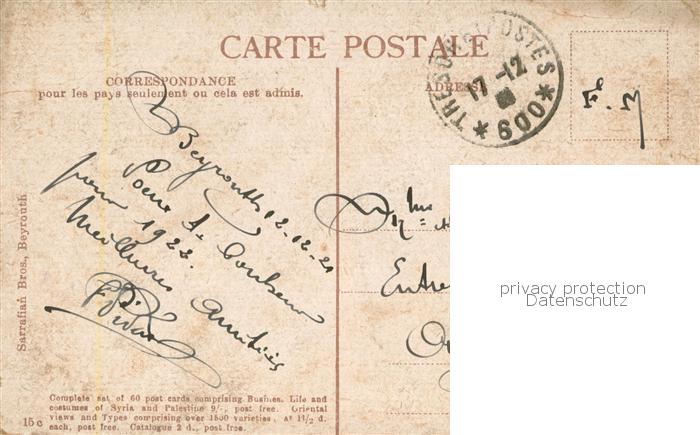 CARTE POSTALE
CORRESPONDANCE
pour les pays seulement ou cela est admis.
ADRESSE
TRESOR ET POSTES
17-12
* 600 *
F. M
Beyrouth 12-12-21
pour 1922.
Meilleures Amitiés
privacy protection
Datenschutz
Sarrafian Bros., Beyrouth
Complete set of 60 post cards comprising Busines. Life and
costumes of Syria and Palestine 9/-, post free. Oriental
views and Types comprising over 1500 varieties, At 1½ d.
each, post free. Catalogue 2 d., post free.
15 c